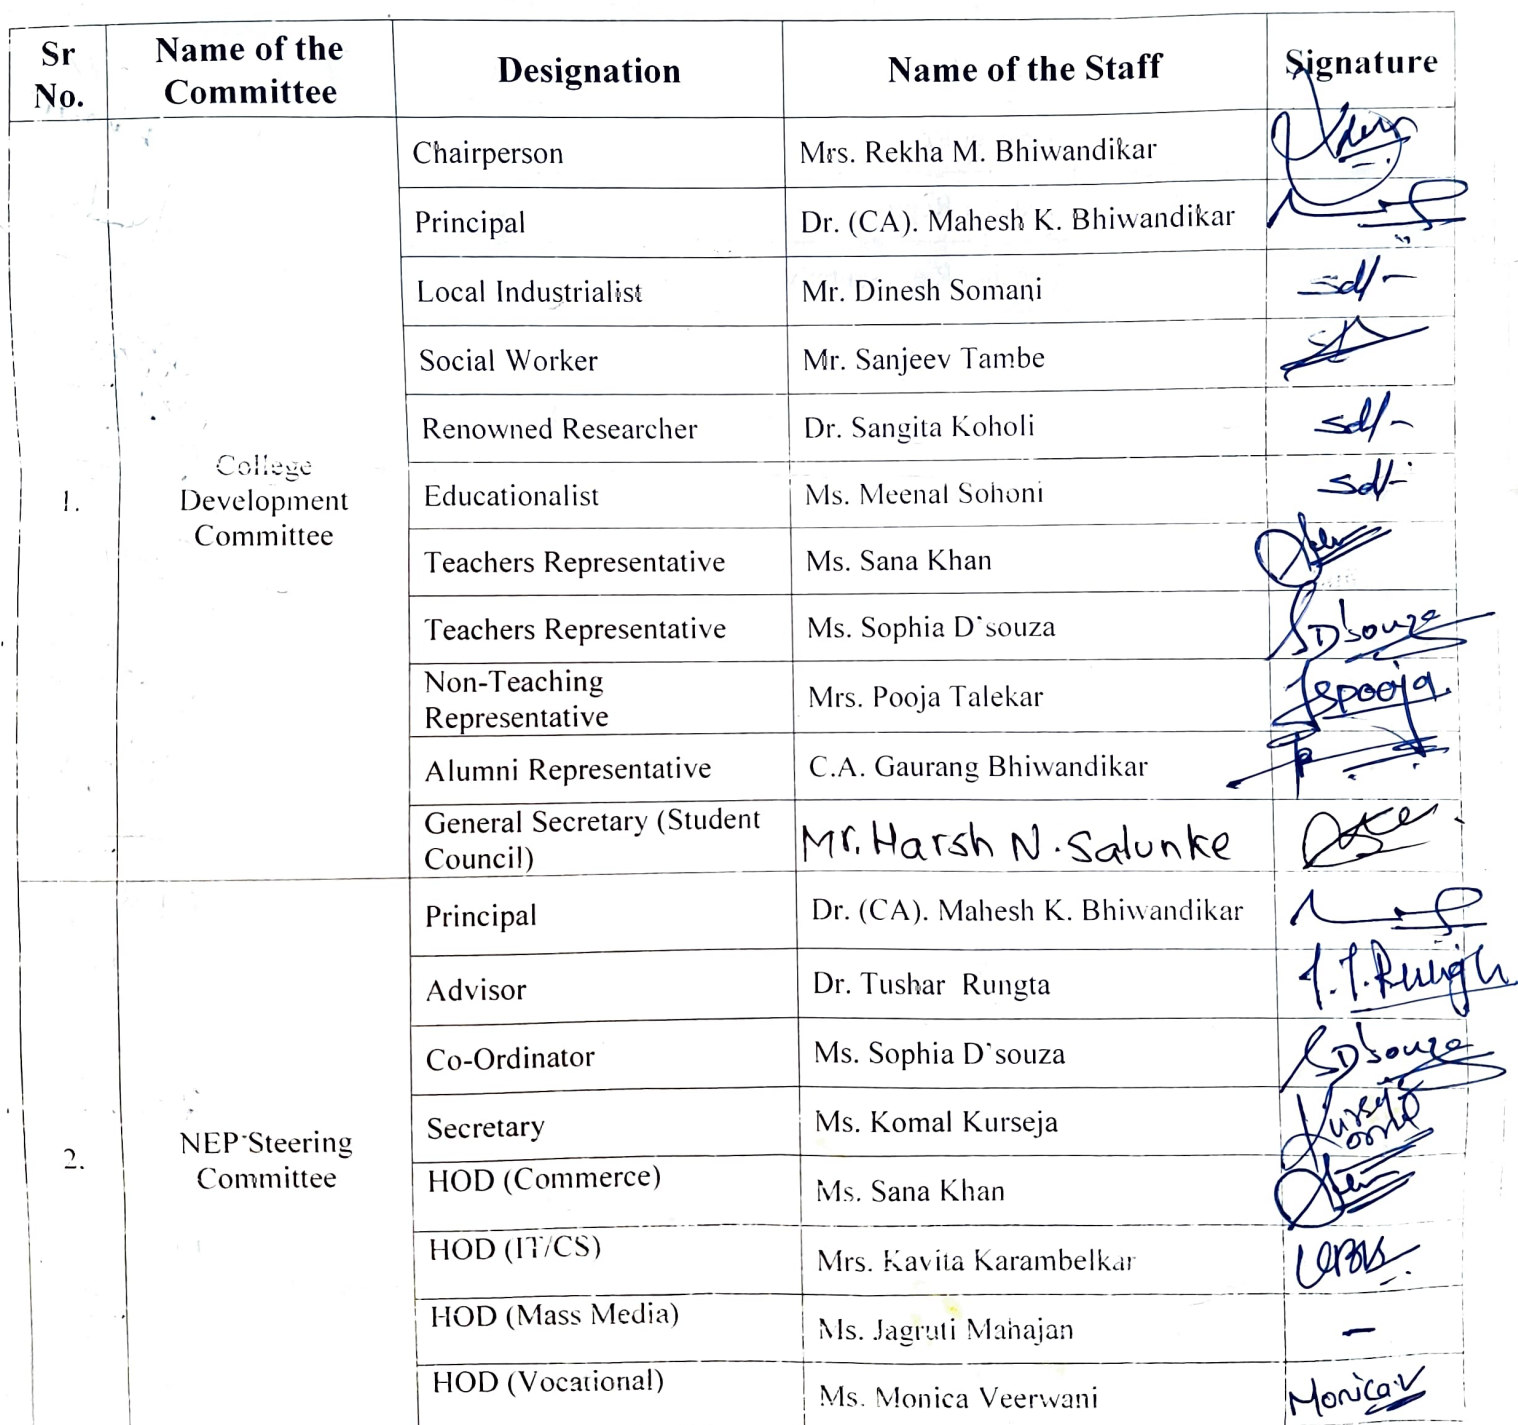 Sr No.
Name of the Committee
Designation
Name of the Staff
Signature
1.
College
Development
Committee
Chairperson Mrs. Rekha M. Bhiwandikar
Principal Dr. (CA). Mahesh K. Bhiwandikar
Local Industrialist Mr. Dinesh Somani sd/-
Social Worker Mr. Sanjeev Tambe
Renowned Researcher Dr. Sangita Koholi sd/-
Educationalist Ms. Meenal Sohoni sd/-
Teachers Representative Ms. Sana Khan
Teachers Representative Ms. Sophia D`souza SD'souza
Non-Teaching
Representative
Mrs. Pooja Talekar pooja
Alumni Representative C.A. Gaurang Bhiwandikar
General Secretary (Student
Council)
Mr. Harsh N. Salunke
2.
NEP Steering
Committee
Principal Dr. (CA). Mahesh K. Bhiwandikar
Advisor Dr. Tushar Rungta
Co-Ordinator Ms. Sophia D`souza SD'souza
Secretary Ms. Komal Kurseja
HOD (Commerce) Ms. Sana Khan
HOD (IT/CS) Mrs. Kavita Karambelkar
HOD (Mass Media) Ms. Jagruti Mahajan -
HOD (Vocational) Ms. Monica Veerwani Monica.V